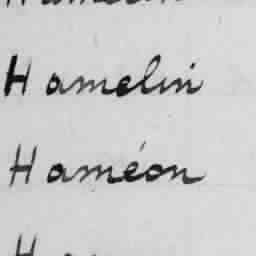 Hamelin
Haméon